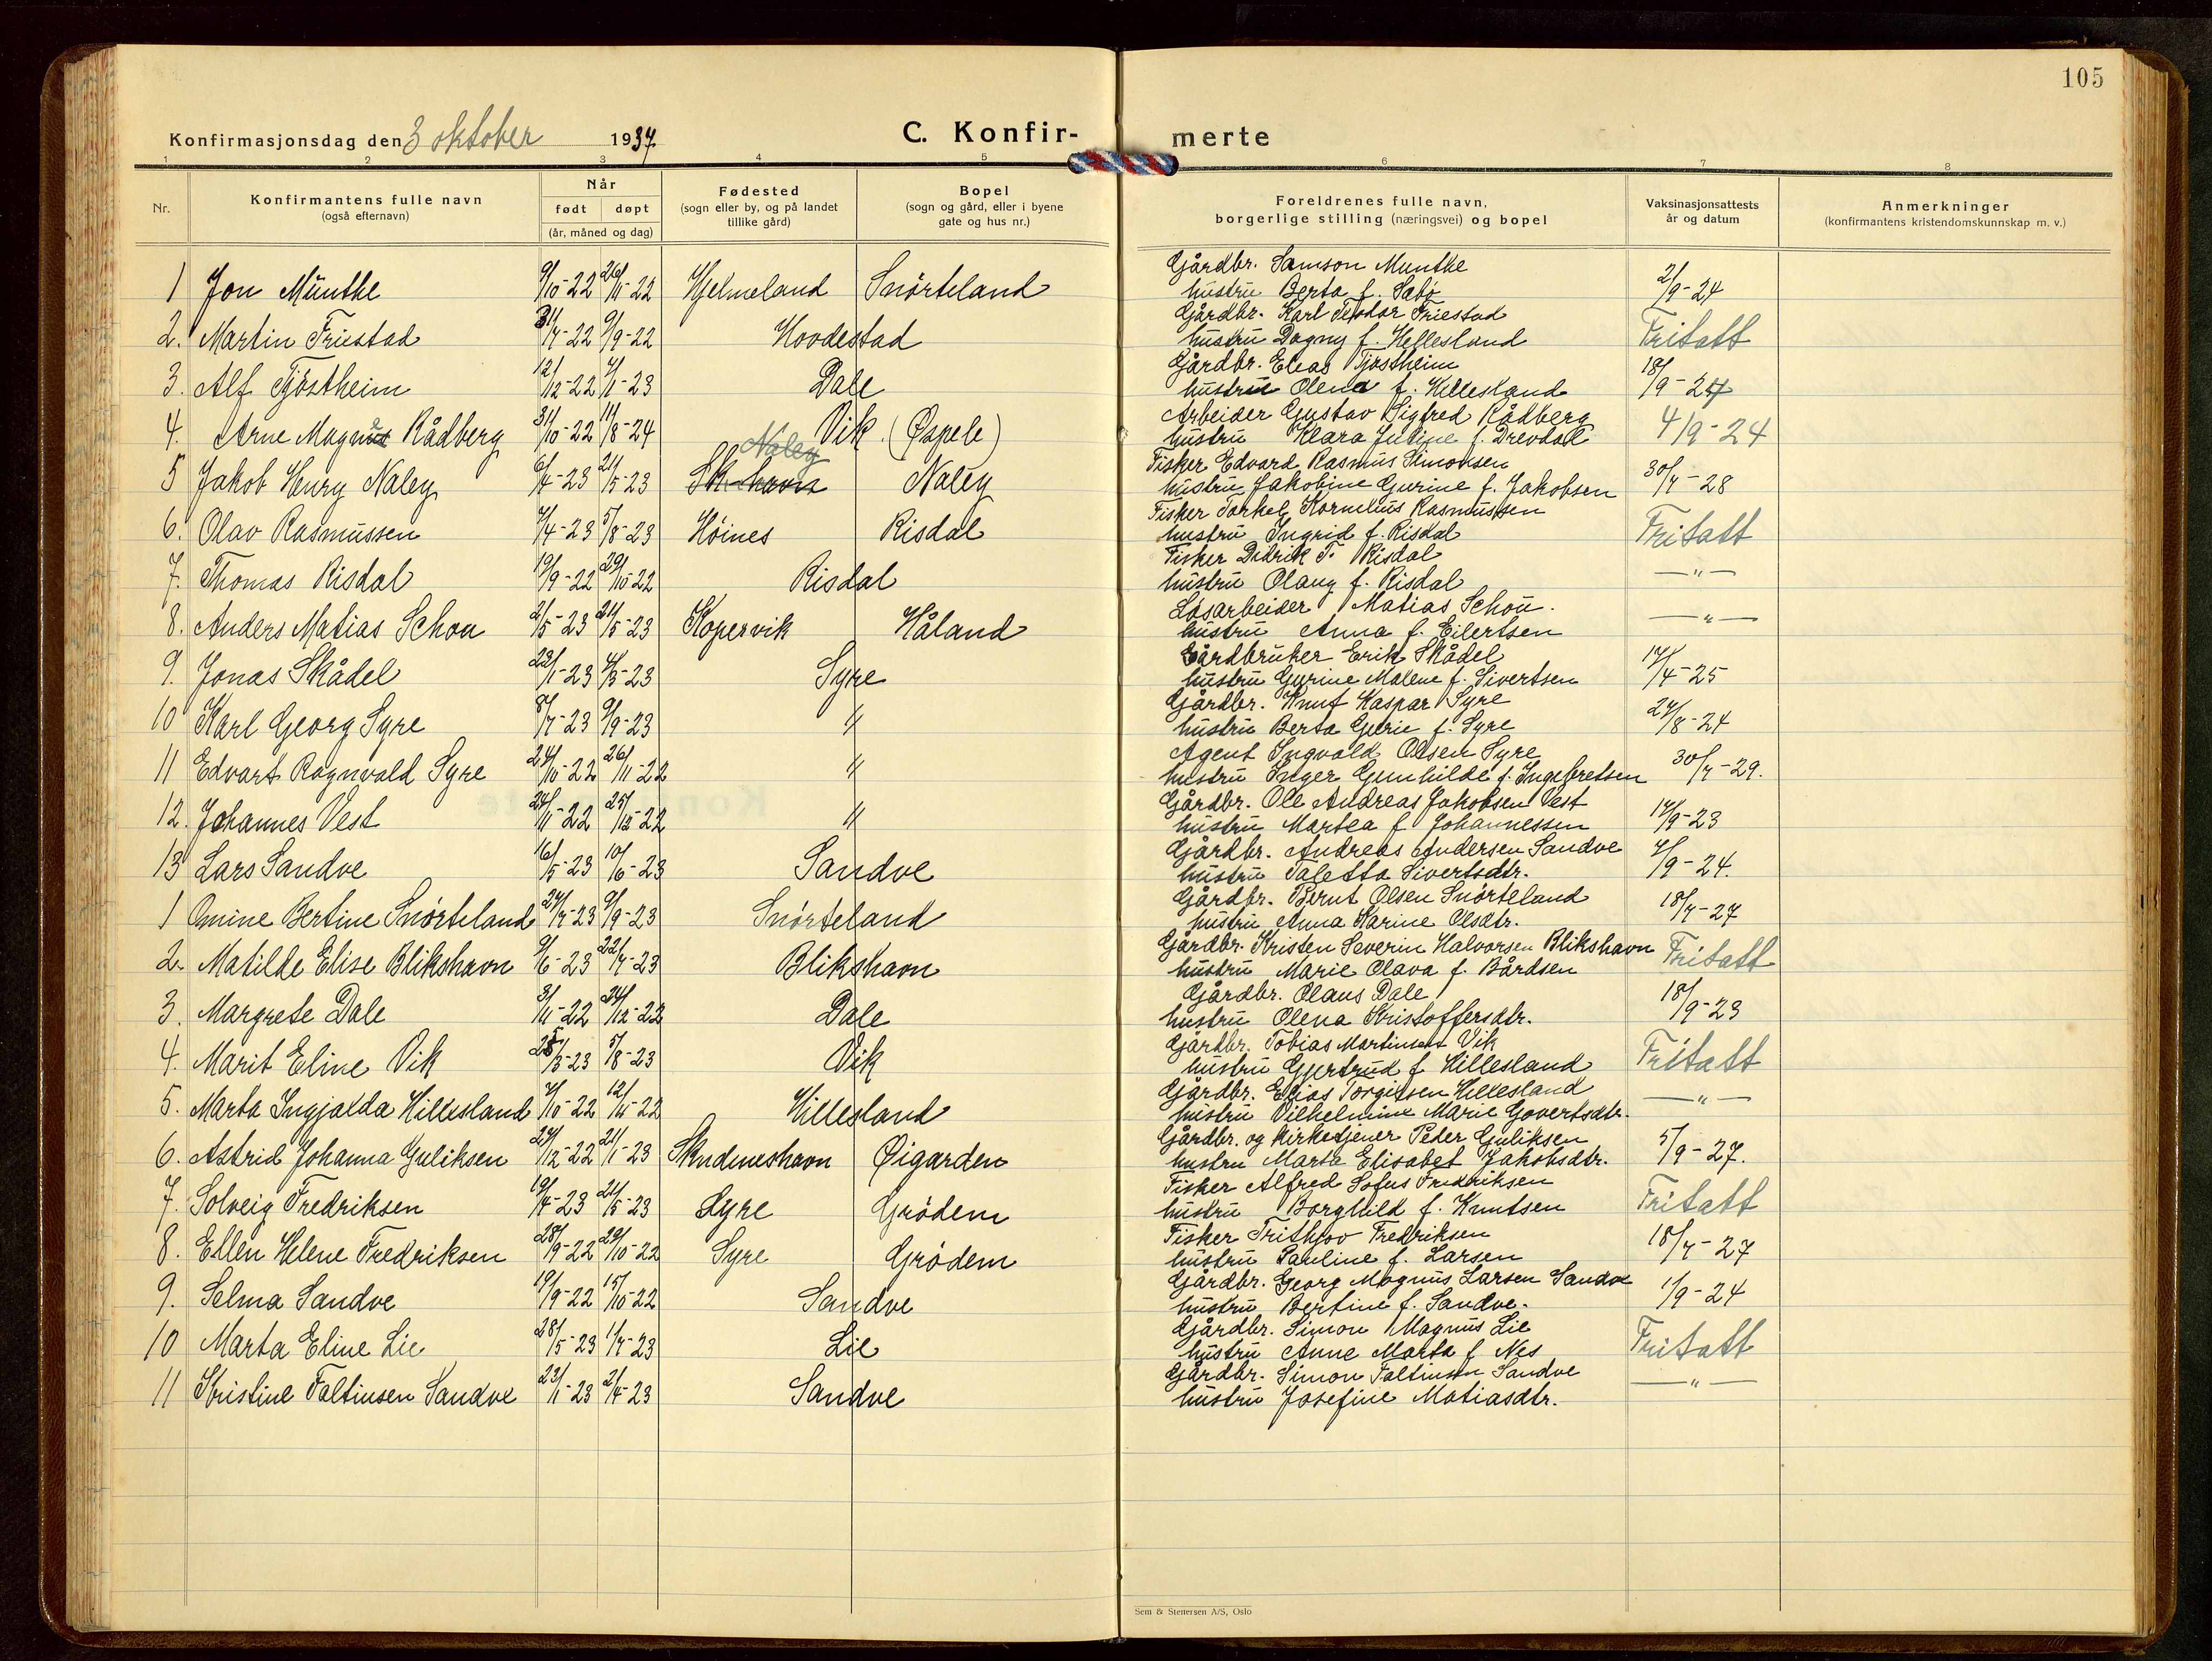 105
Konfirmasjonsdag den 3 oktober 1937
C. Konfir- merte
1 2 3 4 5 6 7 8
Nr.
Konfirmantens fulle navn
(også efternavn)
Når
født døpt
(år, måned og dag)
Fødested
(sogn eller by, og på landet
tillike gård)
Bopel
(sogn og gård, eller i byene
gate og hus nr.)
Foreldrenes fulle navn,
borgerlige stilling (næringsvei) og bopel
Vaksinasjonsattests
år og datum
Anmerkninger
(konfirmantens kristendomskunnskap m. v.)
1 Jon Munthe 9/10-22 26/11-22 Hjelmeland Snørteland Gårdbr. Samson Munthe
hustru Berta f. Sabø 2/9-24
2. Martin Friestad 31/7-22 9/9-22 Hovdestad Gårdbr. Karl Teodor Friestad
hustru Dagny f. Hillesland Fritatt
3. Alf Tjøstheim 12/12-22 7/1-23 Dale Gårdbr. Elias Tjøstheim
hustru Olena f. Hillesland 18/9-24
4. Arne Magnus Rådberg 31/10-22 11/8-24 Vik (Øspele) Arbeider Gustav Sigfred Rådberg
hustru Klara Jutine f. Drevdal 4/9-24
Naley
5 Jakob Henry Naley 6/4-23 21/5-23 Sk-havn Naley Fisker Edvard Rasmus Simonsen
hustru Jakobine Gurine f. Jakobsen 30/7-28
6. Olav Rasmussen 7/4-23 5/8-23 Høines Risdal Fisker Torkel Kornelius Rasmussen
hustru Ingrid f. Risdal Fritatt
7. Thomas Risdal 19/9-22 29/10-22 Risdal Fisker Didrik T. Risdal
hustru Olaug f. Risdal —"—
8. Anders Matias Schou 2/5-23 21/5-23 Kopervik Håland Løsarbeider Matias Schou.
hustru Anna f. Eilertsen —"—
9. Jonas Skådel 23/1-23 4/3-23 Syre Gårdbruker Erik Skådel
hustru Gurine Malene f. Sivertsen 17/4-25
10 Karl Georg Syre 8/7-23 9/9-23 " Gårdbr. Knut Kaspar Syre
hustru Berta Gurie f. Syre 27/8-24
11 Edvart Ragnvald Syre 24/10-22 26/11-22 " Agent Ingvald Olsen Syre
hustru Inger Gunhilde f. Ingebretsen 30/7-29.
12. Johannes Vest 24/11-22 25/12-22 " Gårdbr. Ole Andreas Jakobsen Vest
hustru Martea f Johannessen 17/9-23
13 Lars Sandve 16/5-23 10/6-23 Sandve Gårdbr. Andreas Andersen Sandve
hustru Taletta Sivertsdtr. 7/9-24.
1 Omine Bertine Snørteland 24/7-23 9/9-23 Snørteland Gårdbr. Bernt Olsen Snørteland
hustru Anna Karine Olsdtr. 18/7-27
2. Matilde Elise Blikshavn 9/6-23 22/7-23 Blikshavn Gårdbr. Kristen Severin Halvorsen Blikshavn
hustru Marie Olava f. Bårdsen Fritatt
3. Margrete Dale 3/11-22 24/12-22 Dale Gårdbr. Olaus Dale
hustru Olena Kristoffersdtr. 18/9-23
4. Marit Eline Vik 25/3-23 5/8-23 Vik Gårdbr. Tobias Martinsen Vik
hustru Gjertrud f Hillesland Fritatt
5. Marta Ingjalda Hillesland 7/10-22 12/11-22 Hillesland Gårdbr. Elias Torgilsen Hillesland
hustru Vilhelmine Marie Govertsdtr. —"—
6. Astrid Johanna Guliksen 27/12-22 21/1-23 Skudeneshavn Øigarden Gårdbr. og kirketjener Peder Guliksen
hustru Marta Elisabet Jakobsdtr. 5/9-27.
7. Solveig Fredriksen 19/4-23 21/5-23 Syre Grødem Fisker Alfred Sofus Fredriksen
hustru Borghild f. Knutsen Fritatt
8. Ellen Helene Fredriksen 28/9-22 29/10-22 Syre Grødem Fisker Frithjov Fredriksen
hustru Pauline f. Larsen 18/7-27
9. Selma Sandve 19/9-22 15/10-22 Sandve Gårdbr. Georg Magnus Larsen Sandve
hustru Bertine f. Sandve. 1/9-24
10 Marta Eline Lie 28/5-23 1/7-23 Lie Gårdbr. Simon Magnus Lie
hustru Anne Marta f Nes Fritatt
11 Kristine Faltinsen Sandve 23/1-23 2/4-23 Sandve Gårdbr. Simon Faltinsen Sandve
hustru Josefine Matiasdtr. —"—
Sem & Stenersen A/S, Oslo